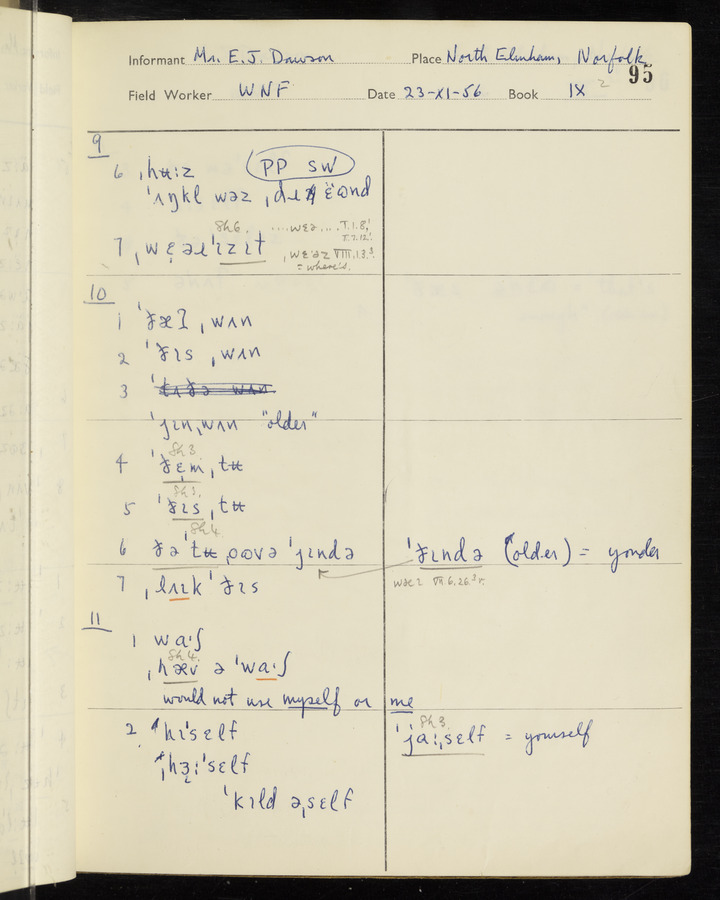 Informant Mr. E.J. Dawson Place North Elmham, Norfolk
95
Field Worker WNF Date 23-XI-56 Book IX 2
9
6 ˌhʉːz PP SW
ˈʌŋkl wəz
Sh6. ....wɛə....V.1.8;
V.2.12.
7 ˌwɛəɹˈɪzɪt ˌwɛəz VIII.1.3.
= where's.
10
1 ˈðæʔ ˌwʌn
2 ˈðɪs ˌwʌn
3
ˈjɪnˌwʌn "older"
Sh3.
4 ˈðɛm ˌtʉ
Sh3.
5 ˈðɪs ˌtʉ
Sh4.
6 ðəˈtʉ ˌoʊvə ˈjɪndə ˈðɪndə (older) = yonder
7 ˌlʌɪk ˈðɪs
11
1 waˑʃ
Sh4.
ˌhæv ə ˈwaːʃ
would not use myself or me
2 ˈhɪˈsɛlf
Sh3
ˈjaːˌsɛlf = yourself
ˌhɜːˈsɛlf
ˈkɪld əˌsɛlf